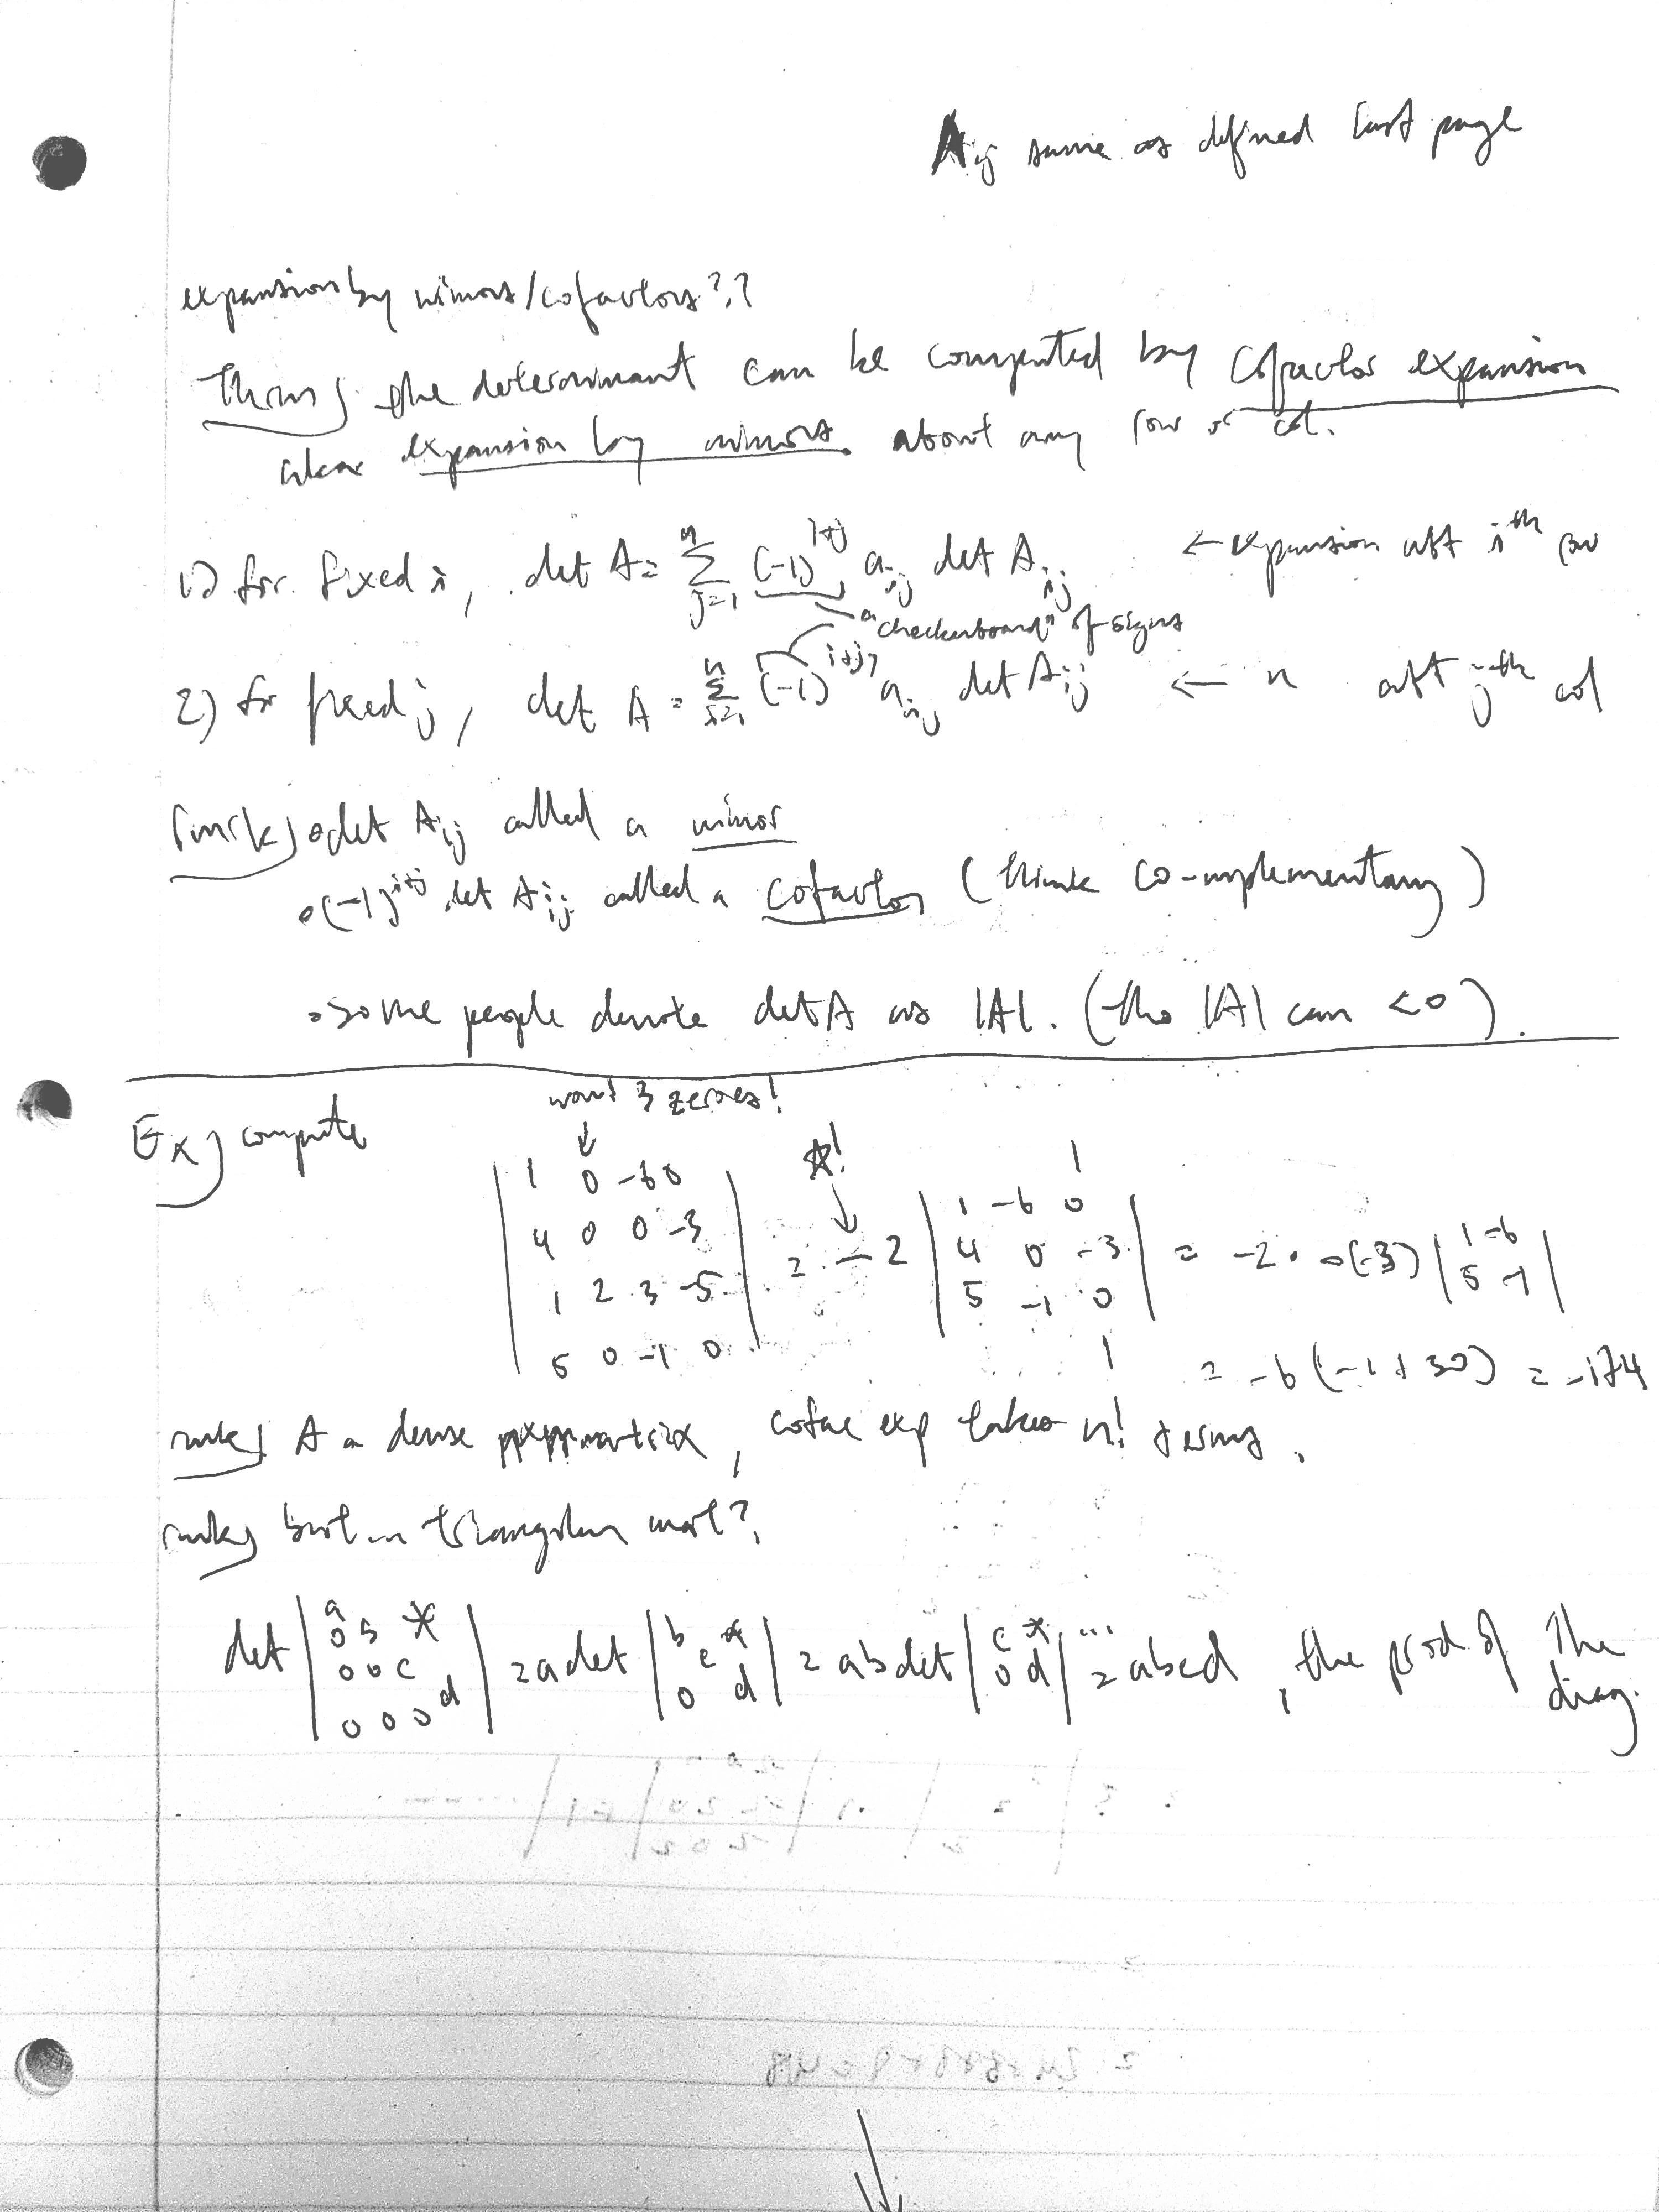 Aij same as defined last page
expansion by minors/cofactors??
Thm) the determinant can be computed by cofactor expansion
expansion by minors about any row or col.
1) for fixed i, det A = Σ_{j=1}^{n} (-1)^{i+j} a_ij det A_ij ← expansion abt i^th row
"checkerboard" of signs
2) for fixed j, det A = Σ_{i=1}^{n} (-1)^{i+j} a_ij det A_ij ← " abt j^th col
rmrk) • det A_ij called a minor
• (-1)^{i+j} det A_ij called a cofactor (think co-mplementary)
• some people denote det A as |A|. (tho |A| can <0).
want 3 zeroes!
Ex) compute
↓ ☆! ↓
| 1 0 -6 0 |
| 4 0 0 -3 |
| 1 2 3 -5 |
| 5 0 -1 0 |
= -2 | 1 -6 0 |
| 4 0 -3 |
| 5 -1 0 |
= -2 · -(-3) | 1 -6 |
| 5 -1 |
= -6(-1+30) = -174
rmk) A a dense matrix, cofac exp takes n! terms.
rmk) but in triangular mat?
det | a * |
| 0 b |
| 0 0 c |
| 0 0 0 d |
= a det | b * |
| c |
| 0 d |
= ab det | c * |
| 0 d |
... = abcd, the prod of the
diag.